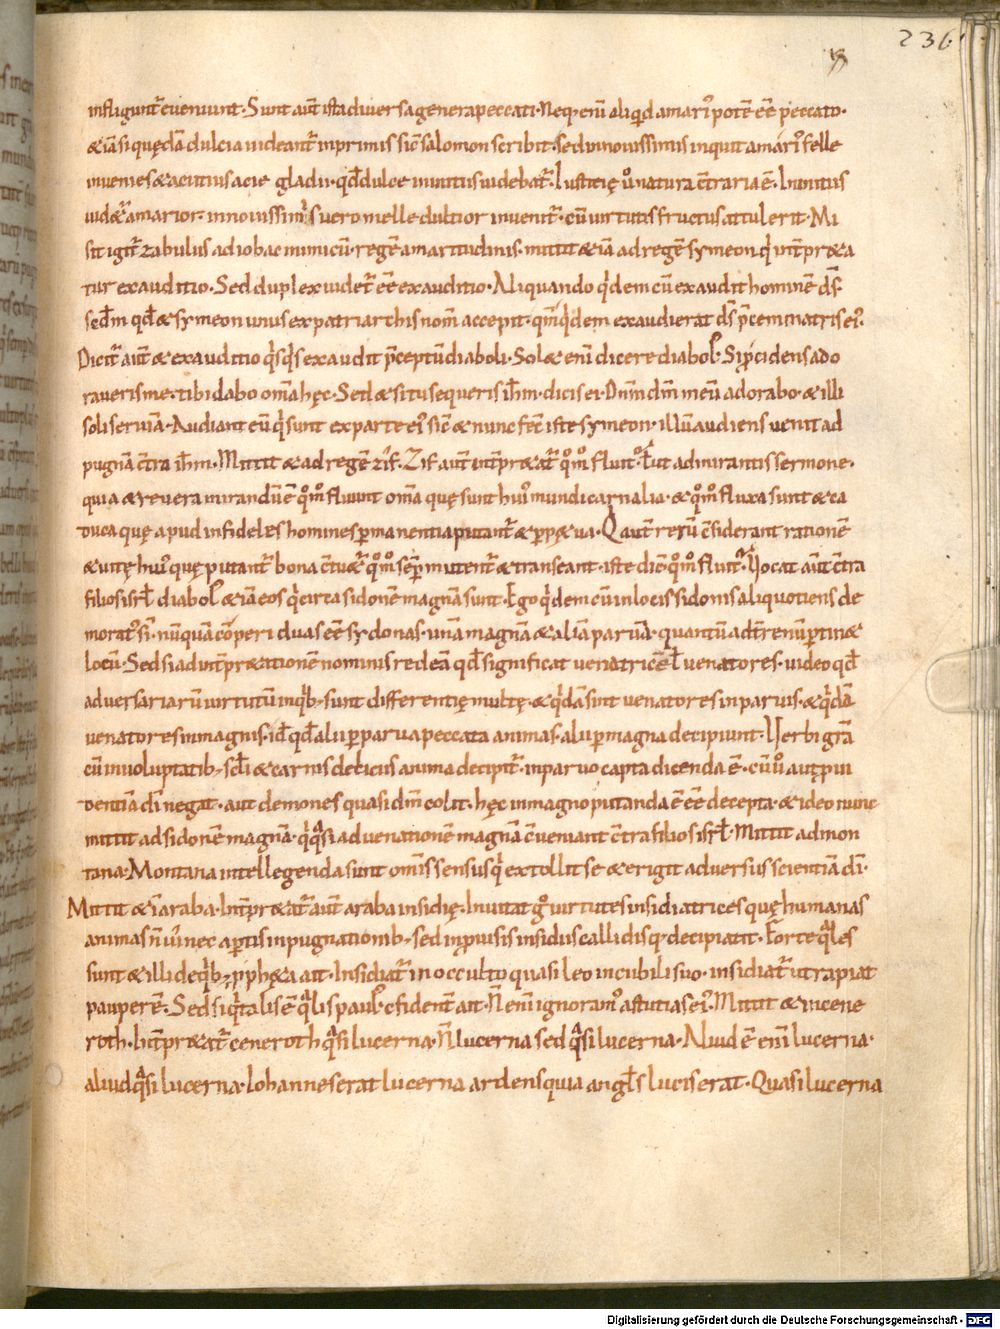 236
infligunt᷑ eveniunt. Sunt aut̄ ista diversa genera peccati. Neq· enī aliquid amari᷒ potē eē peccato.
&iā si quędā dulcia uideant᷑ inprimis sic̄ salomon scribit. sed innouissimis inquit amari᷒ felle
inuenies & acutius acie gladii. qđ dulce initius uidebat᷑. Iusticię ů natura c̄traria ē. Initius
uid&᷑ amarior. innouissimis uero melle dulcior inuenit᷑. cū uirtutis fructus attulerit. Mi
sit igit᷑ zabulus ad iobac inimicū. regē amaritudinis. mittit &iā ad regē symeon qͥ int̄pr&a
tur exauditio. Sed duplex uidet᷑ eē exauditio. Aliquando qͥdem cū exaudit hominē d̄s̄.
scd̄m qđ & symeon unus ex patriarchis nom̄ accepit. qm̄ qͥdem exaudierat d̄s̄ p̄cem matris ei᷒.
Dicit᷑ aut̄ & exauditio qͥsqͥs exaudit p̄ceptū diaboli. Sol& enī dicere diabol᷒. Si p̄cidens ado
raueris me. tibi dabo om̄a hęc. Sed & si tu sequeris ih̄m. dicis ei. Dn̄m dm̄ meū adorabo. & illi
soli seruiā. Audiant eū qͥ sunt ex parte ei᷒ sic̄ & nunc fec̄ iste symeon. illū audiens uenit ad
pugnā c̄tra ih̄m. Mittit & ad regē zif. Zif aut̄ int̄pr&at᷑ qͦmͦ fluit. ł ut admirantis sermone.
quia & reuera mirandū ē qͦmͦ fluunt om̄a quę sunt hui᷒ mundi carnalia. & qͦmͦ fluxa sunt & ca
duca quę apud infideles homines p̱manentia putant᷑ & p̱p&ua. Q̇ aut̄ rerū c̄siderant rationē
& uitę hui᷒ quę putant᷑ bona c̄tu&᷑ qͦmͦ semp̱ mutent᷑ & transeant. iste dic̄ qͦmͦ fluit᷑. Uocat aut̄ c̄tra
filios isrł diabol᷒ &iā eos qͥ circa sidonē magnā sunt. Ego qͥdem cū in locis sidonis aliquotiens de
morat᷒ sī. nūquā cōperi duas eē sydonas. unā magnā & aliā paruā. quantū ad tērenū p̱tin&
locū. Sed si ad int̄pr&ationē nominis redeā qđ significat uenatricē ł uenatores. uideo qđ
adversariarū uirtutū inqͥb; sunt differentię multę. & qͥdā sint uenatores in paruis. & qͥdā
uenatores in magnis. id̄ qđ alii p̱ parua peccata animas. alii p̱ magna decipiunt. Uerbi gr̄a
cū in uoluptatib; scłi & carnis deliciis anima decipit᷑. in paruo capta dicenda ē. cū ů aut p̱ui
dentiā dī negat. aut demones quasi dm̄ colit. hęc in magno putanda ē eē decepta. & ideo nunc
mittit ad sidonē magnā. qͥ qͣsi ad uenationē magnā c̄ueniant c̄tra filios isrł. Mittit ad mon
tana. Montana intellegenda sunt omīs sensus qͥ extollit se & erigit adversus scientiā dī.
Mittit &iā araba. Int̄pr&at᷑ aut̄ araba insidię. Inuitat ǧ uirtutes insidiatrices quę humanas
animas n̄ ui᷒ nec ap̱tis inpugnationib; sed inp̱uisis insidiis callidisq· decipiant. Forte qͣles
sunt & illi de qͥb; p̱ph&a ait. Insidiat᷑ in occulto quasi leo in cubili suo. insidiat᷑ ut rapiat
pauperē. Sed si qͥ talis ē qͣlis paul᷒. c̄fident̄ ait. N̄ enī ignoram᷒ astutias ei᷒. Mittit & in cene
roth. Int̄pr&at᷑ ceneroth qͣsi lucerna. N̄ lucerna sed qͣsi lucerna. Aliud ē enī lucerna.
aliud qͣsi lucerna. Iohannes erat lucerna ardens quia angłs lucis erat. Quasi lucerna
Digitalisierung gefördert durch die Deutsche Forschungsgemeinschaft - DFG